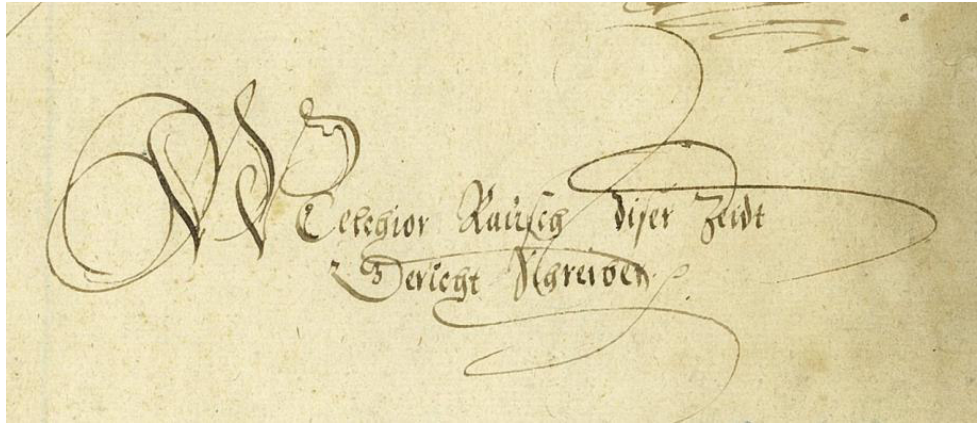 Melchior Rausch diser Zeidt
Gericht Schreiber